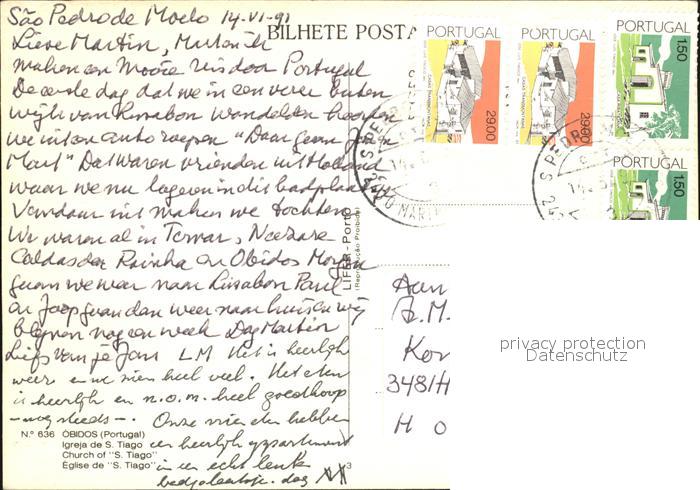 São Pedro de Moelo 14-VI-91
Lieve Martin,
maken een mooie reis door Portugal
De eerste dag dat we in een ver buiten
wijk van Lissabon wandelden hoorden
we uit een auto roepen "Daar gaan Jan en
Mart" Dat waren vrienden uit Holland
waar we nu logeren in dit badplaatsje
Vandaar uit maken we tochten
We waren al in Tomar, Nazare
Caldas da Rainha en Obidos Morgen
gaan we weer naar Lissabon Paul
en Joop gaan dan weer naar huis en wij
blijven nog een week Dag Martin
Liefs van je Jans L M Het is heerlijk
weer en we zien heel veel. Het eten
is heerlijk en n.o.m. heel goedkoop
- nog steeds -. Onze vrienden hebben
een heerlijk appartement
in een echt leuk
badplaatsje. dag
BILHETE POSTA
PORTUGAL
29.00
PORTUGAL
29.00
PORTUGAL
1.50
1.50
LIFER-Porto
(Reprodução Proibida)
Aan
A.M.
Kor
3481H
H O
N.º 636 ÓBIDOS (Portugal)
Igreja de S. Tiago
Church of "S. Tiago"
Église de "S. Tiago"
3
privacy protection
Datenschutz